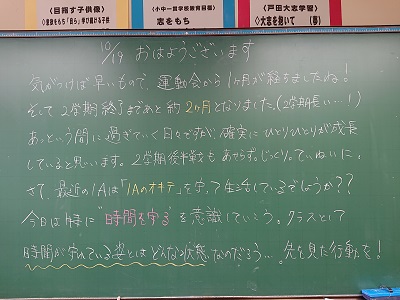 〈目指す子供像〉
〈小中一貫学校教育目標〉
志をもち
〈戸田大志学習〉
◇大志を抱いて (夢)
10/19 おはようございます
気がつけば早いもので、運動会から1ヶ月が経ちましたね!
そして2学期終了まであと約2ヶ月となりました。(2学期長い…!)
あっという間に過ぎていく日々ですが、確実にひとりひとりが成長
していると思います。2学期後半戦もあせらず。じっくり。ていねいに。
さて、最近の1Aは「1Aのオキテ」を守って生活しているでしょうか??
今日は特に"時間を守る"を意識していこう。クラスとして
時間が守れている姿とはどんな状態なのだろう…。先を見た行動を!